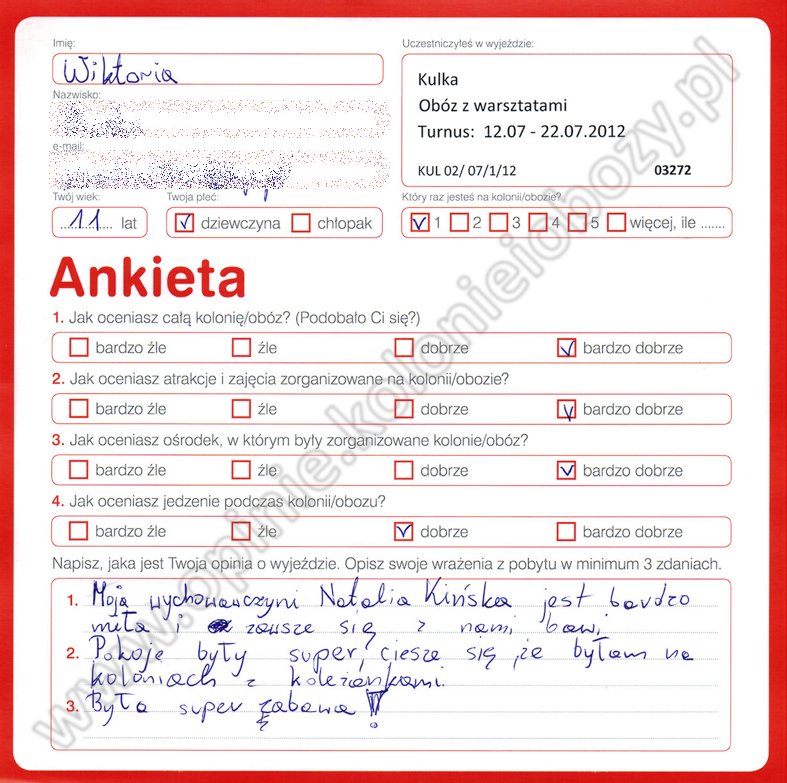 Imię:
Wiktoria
Uczestniczyłeś w wyjeździe:
Kulka
Obóz z warsztatami
Turnus: 12.07 - 22.07.2012
KUL 02/ 07/1/12 03272
Nazwisko:
e-mail:
Twój wiek:
11 lat
Twoja płeć:
dziewczyna chłopak
Który raz jesteś na kolonii/obozie?
1 2 3 4 5 więcej, ile .......
Ankieta
1. Jak oceniasz całą kolonię/obóz? (Podobało Ci się?)
bardzo źle źle dobrze bardzo dobrze
2. Jak oceniasz atrakcje i zajęcia zorganizowane na kolonii/obozie?
bardzo źle źle dobrze bardzo dobrze
3. Jak oceniasz ośrodek, w którym były zorganizowane kolonie/obóz?
bardzo źle źle dobrze bardzo dobrze
4. Jak oceniasz jedzenie podczas kolonii/obozu?
bardzo źle źle dobrze bardzo dobrze
Napisz, jaka jest Twoja opinia o wyjeździe. Opisz swoje wrażenia z pobytu w minimum 3 zdaniach.
1. Moja wychowawczyni Natalia Kińska jest bardzo
miła i zawsze się z nami bawi
2. Pokoje były super, ciesze się, że byłam na
koloniach z koleżankami.
3. Była super zabawa!
www.opinie.kolonieiobozy.pl